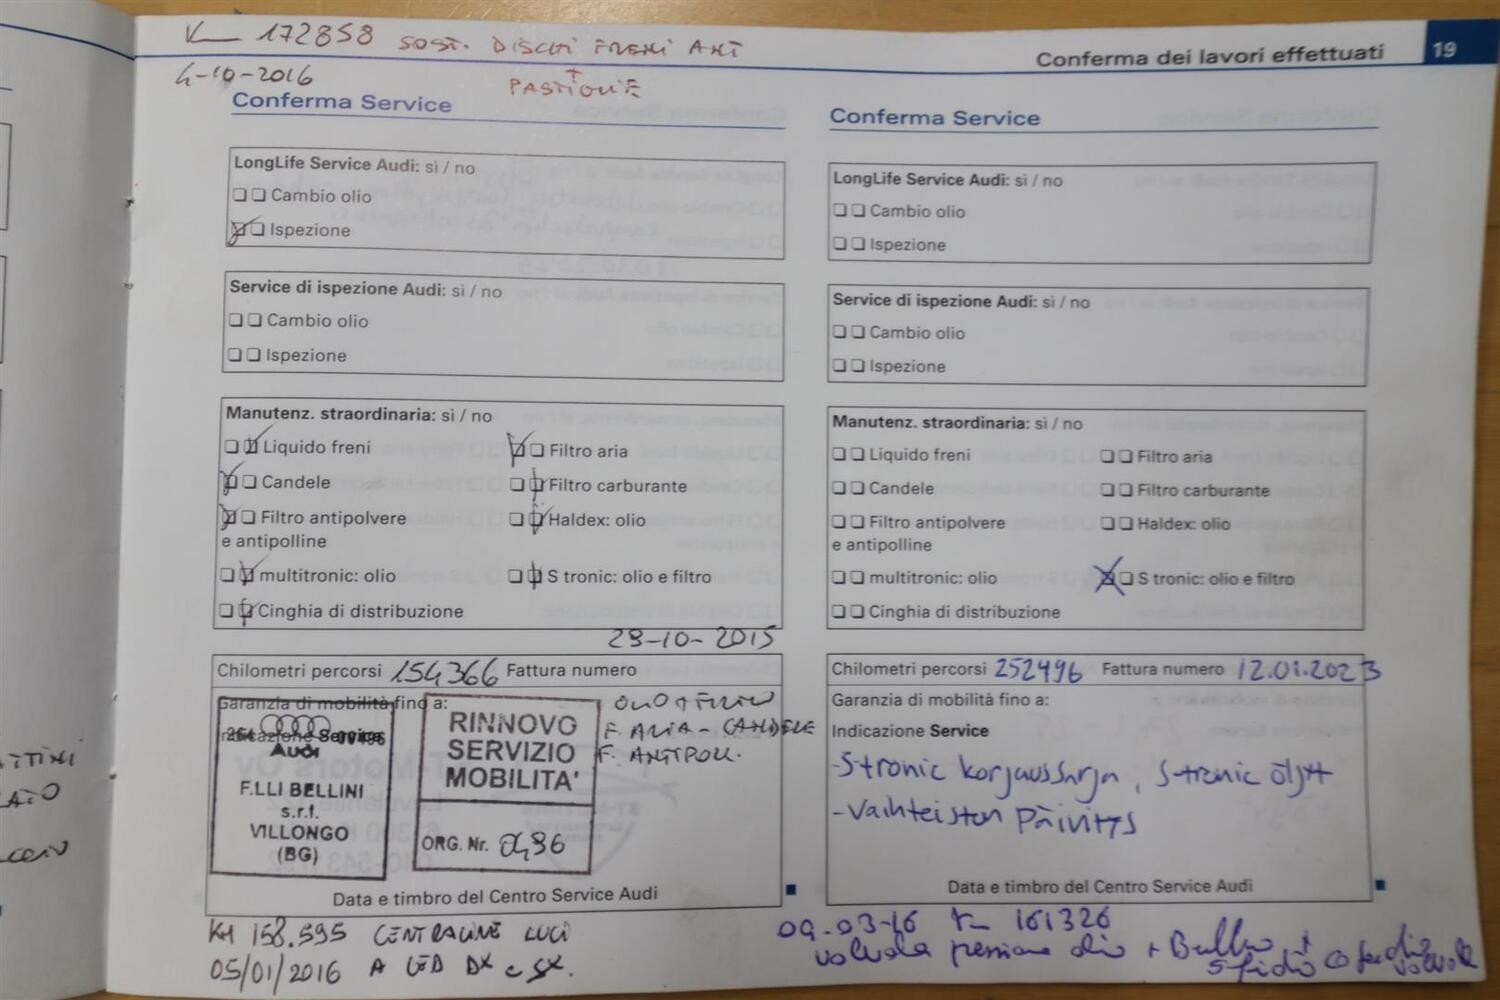 K 172858 SOST. DISCHI FRENI ANT
+
PASTIGLIE
4-10-2016
Conferma dei lavori effettuati 19
Conferma Service
LongLife Service Audi: sì / no
Cambio olio
Ispezione
Service di ispezione Audi: sì / no
Cambio olio
Ispezione
Manutenz. straordinaria: sì / no
Liquido freni Filtro aria
Candele Filtro carburante
Filtro antipolvere Haldex: olio
e antipolline
multitronic: olio S tronic: olio e filtro
Cinghia di distribuzione
29-10-2015
Chilometri percorsi 154366 Fattura numero
Garanzia di mobilità fino a:
Indicazione Service
264 00496
Audi
F.LLI BELLINI
s.r.l.
VILLONGO
(BG)
RINNOVO
SERVIZIO
MOBILITA'
ORG. Nr. 0496
OLIO + FILTRO
F. ARIA - CANDELE
F. ANTIPOLL.
Data e timbro del Centro Service Audi
KM 158.595 CENTRALINE LUCI
05/01/2016 A LED DX e SX.
Conferma Service
LongLife Service Audi: sì / no
Cambio olio
Ispezione
Service di ispezione Audi: sì / no
Cambio olio
Ispezione
Manutenz. straordinaria: sì / no
Liquido freni Filtro aria
Candele Filtro carburante
Filtro antipolvere Haldex: olio
e antipolline
multitronic: olio S tronic: olio e filtro
Cinghia di distribuzione
Chilometri percorsi 252496 Fattura numero 12.01.2023
Garanzia di mobilità fino a:
Indicazione Service
-Stronic korjaussarja, S-tronic öljyt
-Vaihteiston päivitys
Data e timbro del Centro Service Audi
09-03-16 K 161326
valvola pressione olio +